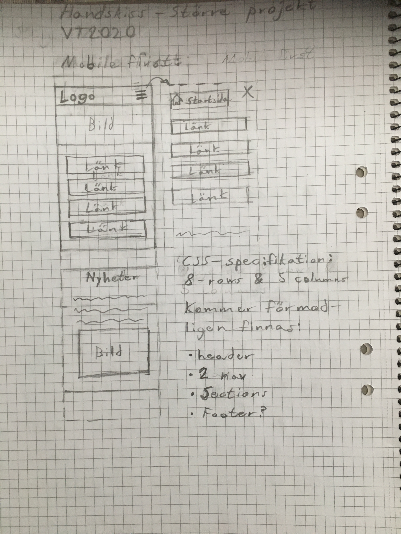 Handskiss - Större projekt
VT2020
Mobile först:
Logo
Bild
Länk
Länk
Länk
Länk
Nyheter
Bild
Startsida X
Länk
Länk
Länk
Länk
CSS-specifikation:
8-rows & 5 columns
Kommer förmod-
ligen finnas:
• header
• 2 nav
• Sections
• Footer?